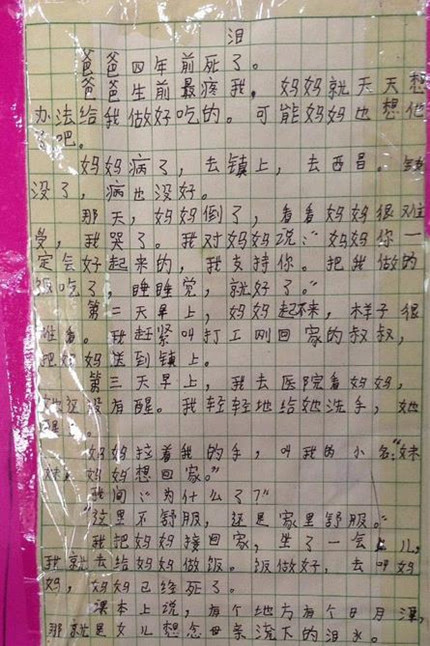 泪
爸爸四年前死了。
爸爸生前最疼我,妈妈就天天想
办法给我做好吃的。可能妈妈也想他
吧。
妈妈病了,去镇上,去西昌。钱
没了,病也没好。
那天,妈妈倒了,看看妈妈很难
受,我哭了。我对妈妈说:“妈妈你一
定会好起来的,我支持你。把我做的
饭吃了,睡睡觉,就好了。”
第二天早上,妈妈起不来,样子很
难看。我赶紧叫打工刚回家的叔叔,
把妈妈送到镇上。
第三天早上,我去医院看妈妈,
她还没有醒。我轻轻地给她洗手,她
醒。
妈妈拉着我的手,叫我的小名:“妹
妹,妈妈想回家。”
我问:“为什么了?”
“这里不舒服,还是家里舒服。”
我把妈妈接回家,坐了一会儿,
我就去给妈妈做饭。饭做好,去叫妈
妈,妈妈已经死了。
课本上说,有个地方有个日月潭,
那就是女儿想念母亲流下的泪水。